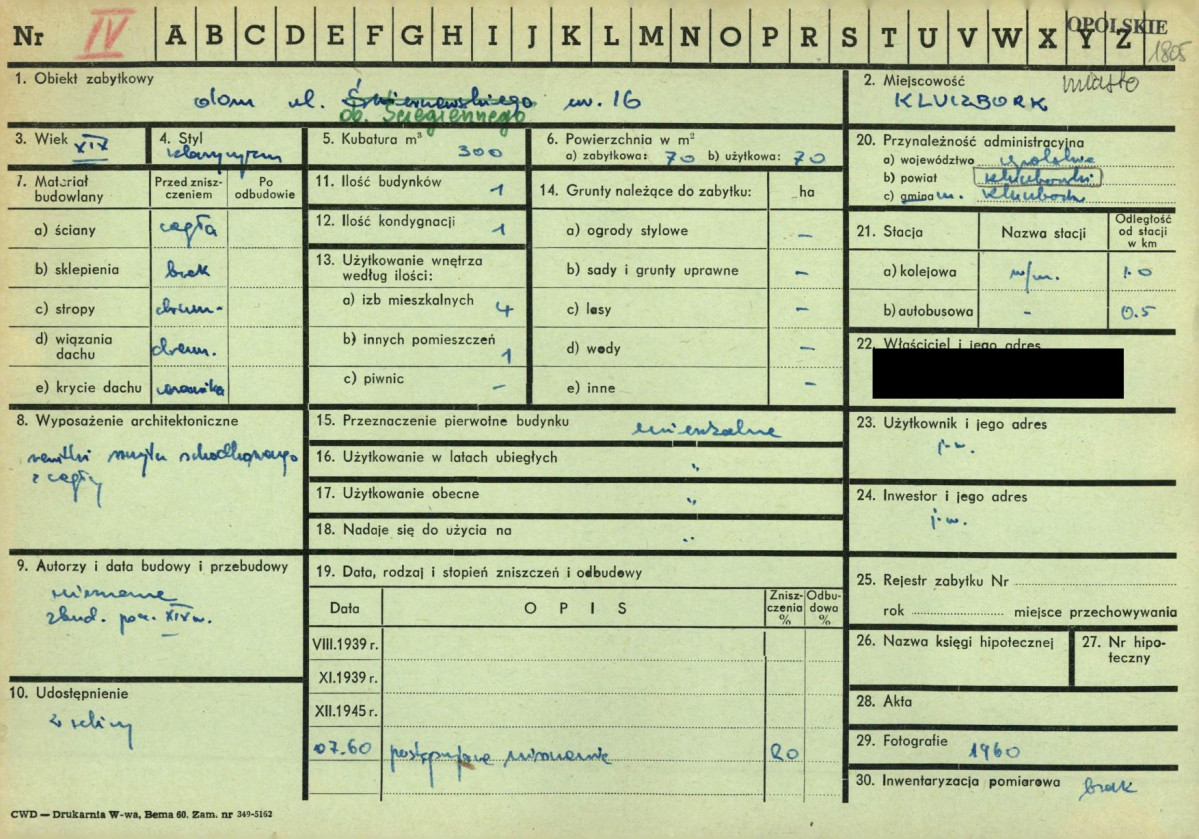 Nr IV A B C D E F G H I J K L M N O P R S T U V W X Y Z
OPOLSKIE
1805
1. Obiekt zabytkowy
dom ul. Świerczewskiego nr. 16
ob. Ściegiennego
2. Miejscowość
miasto
KLUCZBORK
3. Wiek XIX
4. Styl
klasycyzm
5. Kubatura m³ 300
6. Powierzchnia w m²
a) zabytkowa: 70 b) użytkowa: 70
20. Przynależność administracyjna
a) województwo opolskie
b) powiat kluczborski
c) gmina m. Kluczbork
7. Materiał budowlany
Przed zniszczeniem
Po odbudowie
a) ściany cegła
b) sklepienia brak
c) stropy drewn.
d) wiązania dachu drewn.
e) krycie dachu
11. Ilość budynków 1
12. Ilość kondygnacji 1
13. Użytkowanie wnętrza według ilości:
a) izb mieszkalnych 4
b) innych pomieszczeń 1
c) piwnic –
14. Grunty należące do zabytku: ha
a) ogrody stylowe –
b) sady i grunty uprawne –
c) lasy –
d) wody –
e) inne –
21. Stacja
Nazwa stacji
Odległość od stacji w km
a) kolejowa w/m. 1.0
b) autobusowa - 0.5
22. Właściciel i jego adres
8. Wyposażenie architektoniczne
resztki szczytu schodkowego
z cegły
15. Przeznaczenie pierwotne budynku mieszkalne
16. Użytkowanie w latach ubiegłych "
17. Użytkowanie obecne "
18. Nadaje się do użycia na "
23. Użytkownik i jego adres
j.w.
24. Inwestor i jego adres
j.w.
9. Autorzy i data budowy i przebudowy
nieznane
zbud. pocz. XIX w.
19. Data, rodzaj i stopień zniszczeń i odbudowy
Data
OPIS
Zniszczenia %
Odbudowa %
VIII.1939 r.
XI.1939 r.
XII.1945 r.
07.60 postępujące niszczenie 20
25. Rejestr zabytku Nr
rok miejsce przechowywania
26. Nazwa księgi hipotecznej
27. Nr hipoteczny
10. Udostępnienie
z ulicy
28. Akta
29. Fotografie 1960
30. Inwentaryzacja pomiarowa brak
CWD — Drukarnia W-wa, Bema 60. Zam. nr 349-5162